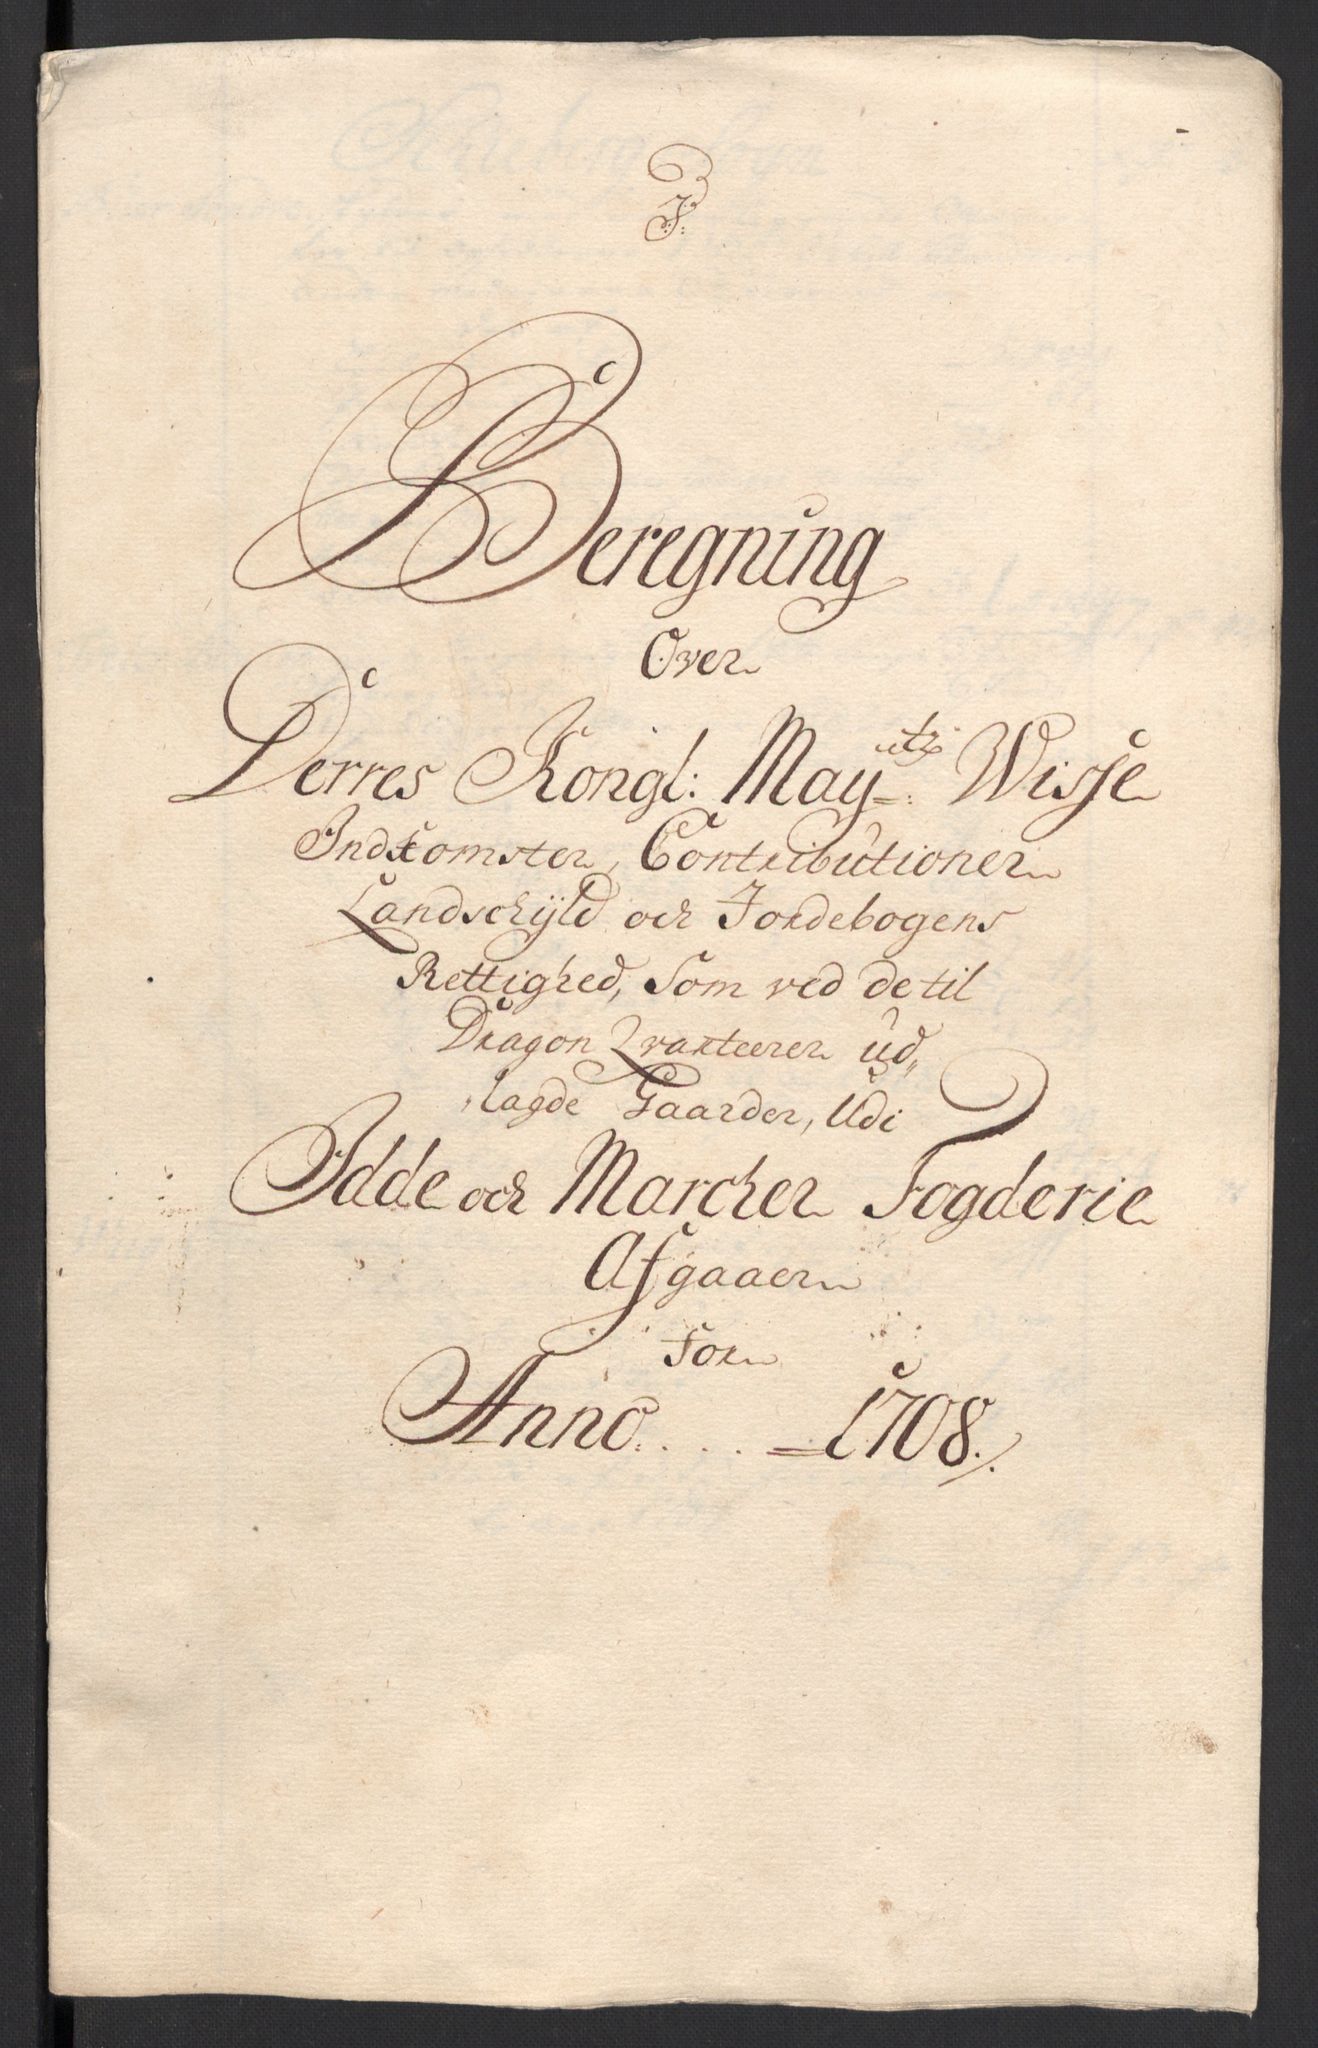 J:
Beregning
Over
Derres Kongl: May:ttz Wisse
Indkomster, Contributioner
Landschyld och Jordebogens
Rettighed, som ved de til
Dragon Qvarteerer ud„
„lagde Gaarder, Udi
Idde och Marcker Fogderie
Afgaaer
for
Anno . . . . 1708.